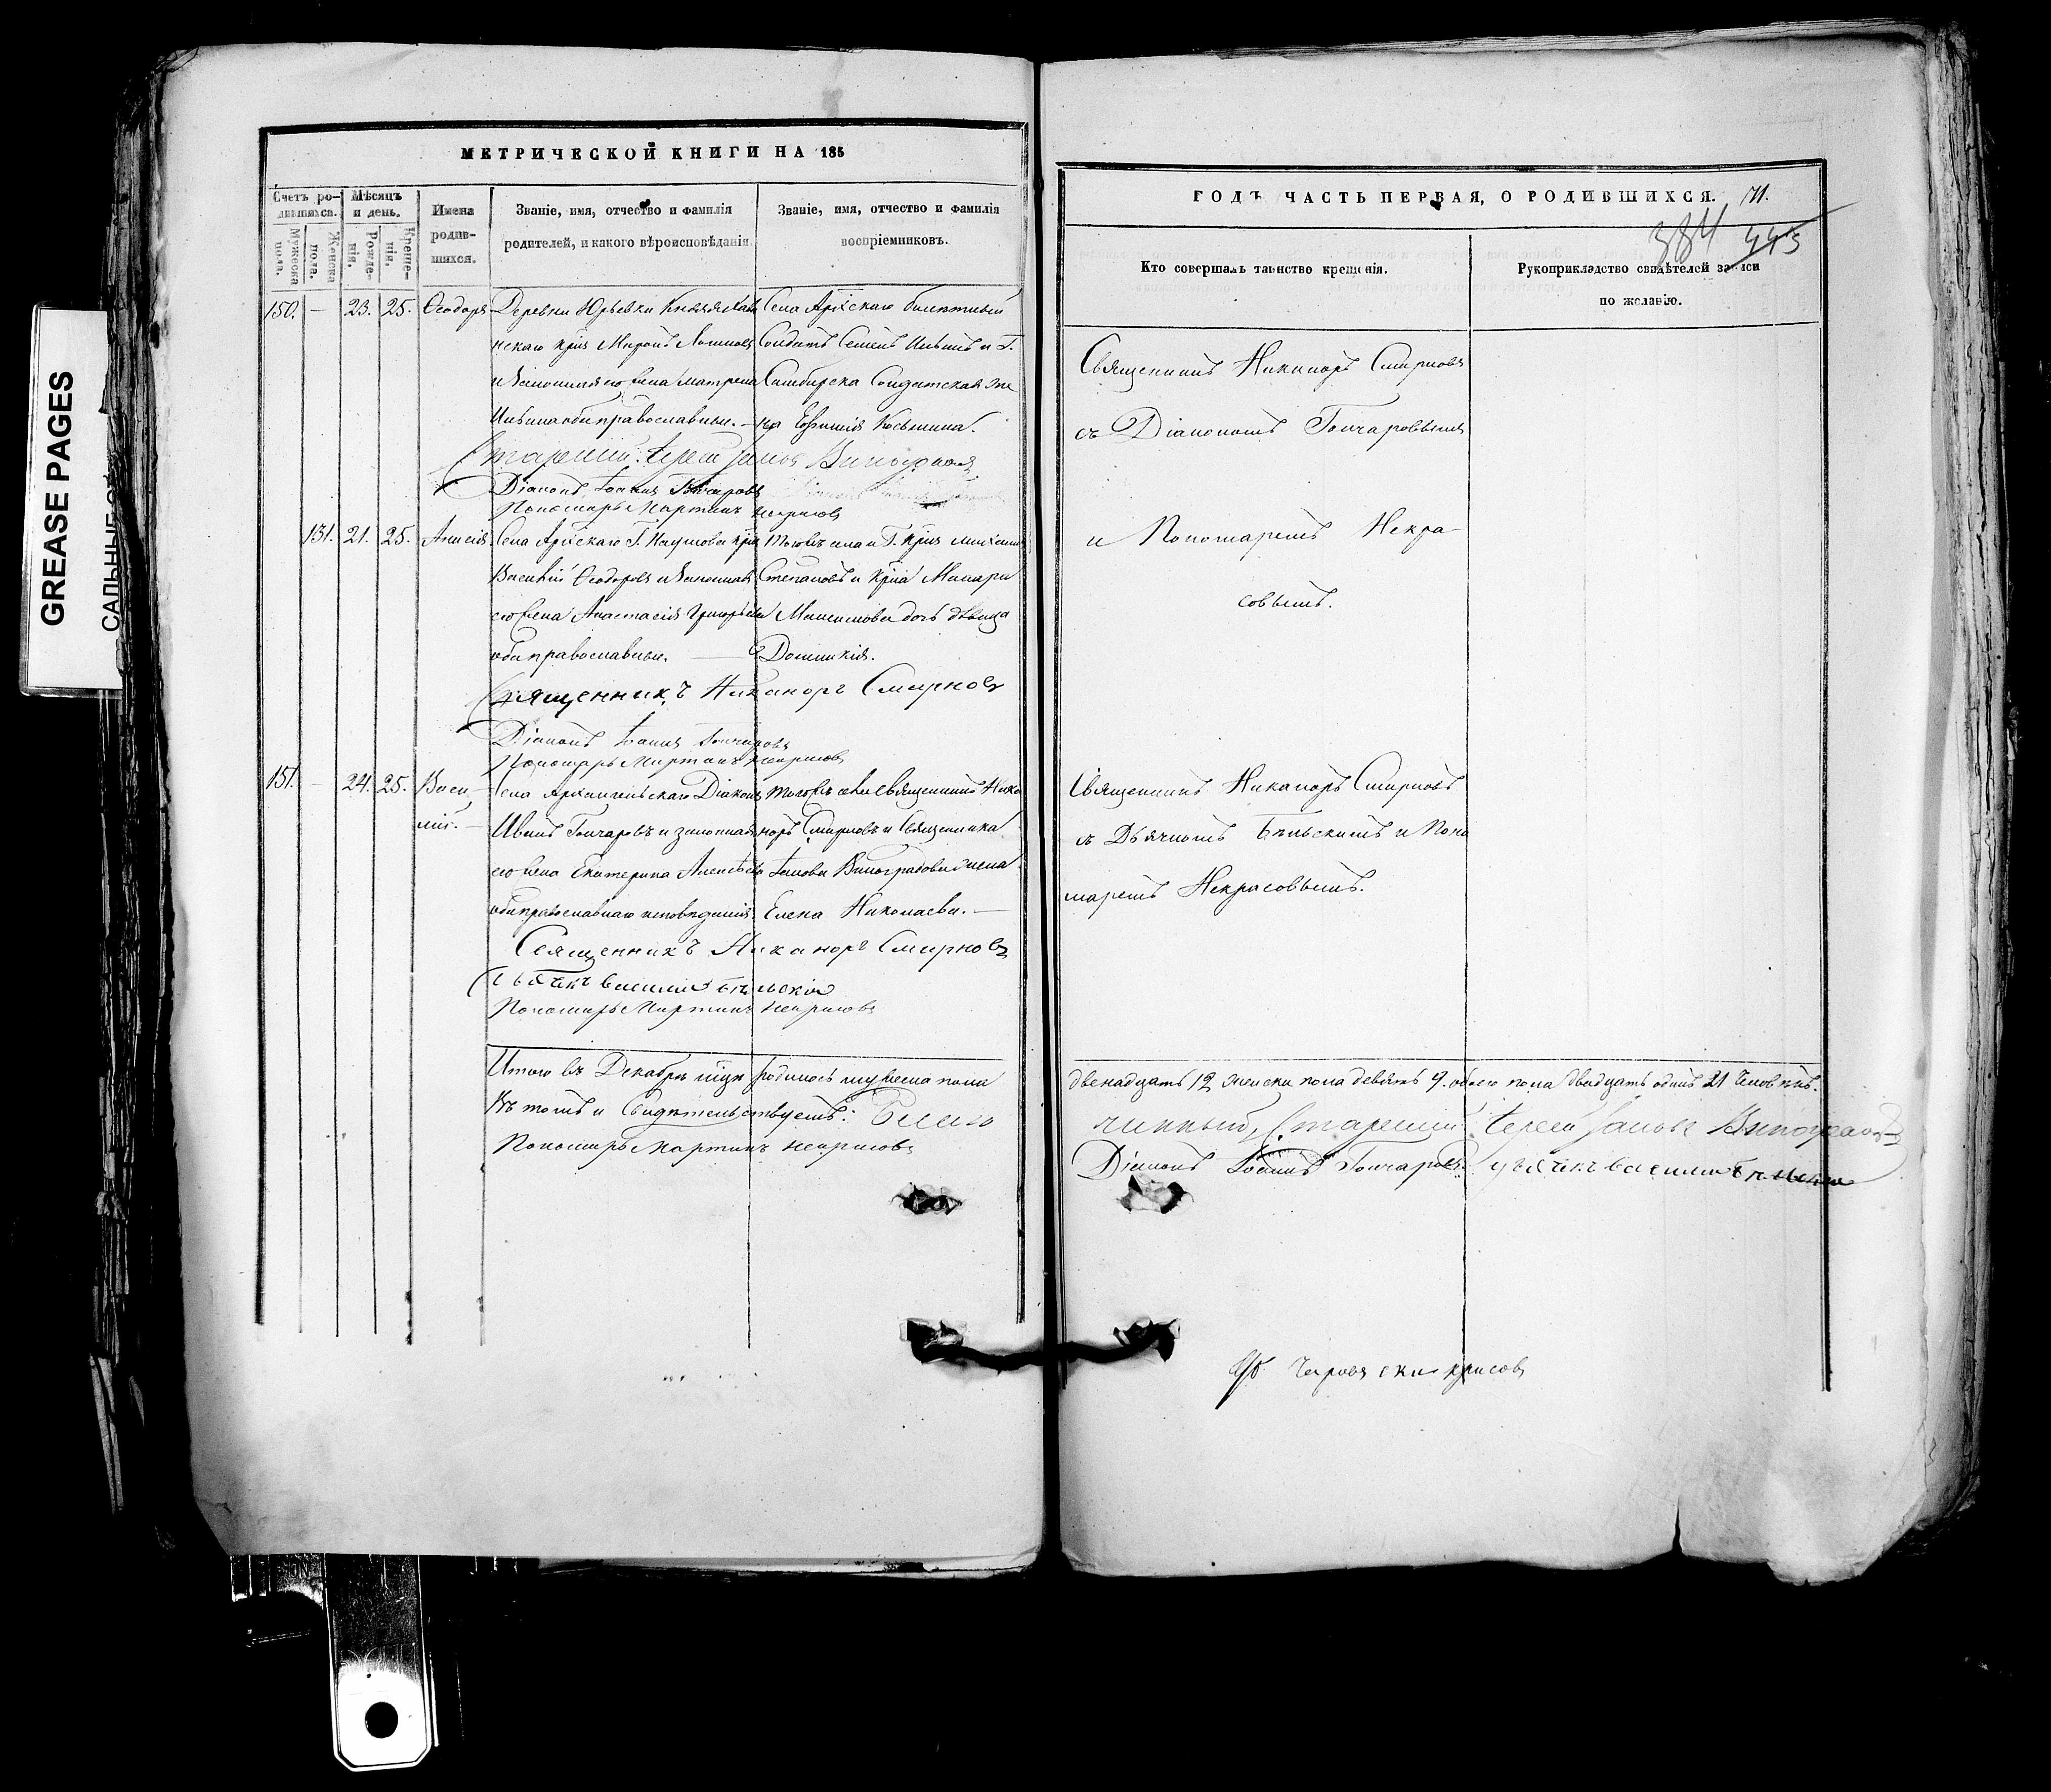 GREASE PAGES
САЛЬНЫЕ
МЕТРИЧЕСКОЙ КНИГИ НА 185
Счетъ родившихся.
Мѣсяцъ и день.
Имена родившихся.
Званіе, имя, отчество и фамилія
родителей, и какого вѣроисповѣданія.
Званіе, имя, отчество и фамилія
воспріемниковъ.
Мужеска пола.
Женска пола.
Рожденія.
Крещенія.
150. — 23. 25. Ѳеодоръ
Деревни Юрьевки Князя
крᲂ Миронъ
и законная его жена Матрена
Ильина оба православные. —
Села Арх̃скаго билетный
Солдатъ Семенъ Ильинъ и Г.
Симбирска Солдатская же
на Евфимія Косьмина.
Старшій Іерей Іаковъ Виноградовъ
Діаконъ Іоаннъ Гончаровъ
Пономарь Мартинъ Некрасовъ
131. 21. 25. Анисія.
Села Арх̃скаго Г. Наумова
Василій Ѳеодоровъ и законная
его жена Анастасія Григорьева
оба православные. —
Того же села и Г.
Степановъ и
Максимова дочь дѣвица
Домникія.
Священникъ Никаноръ Смирновъ
Діаконъ Іоаннъ Гончаровъ
Пономарь Мартинъ Некрасовъ
151. — 24. 25. Васи-
лій. —
Села Архангельскаго Діаконъ
Иванъ Гончаровъ и законная
его жена Екатерина Алексѣева
оба православнаго исповѣданія.
того же села Священникъ Ника
норъ Смирновъ и Священника
Іакова Виноградова жена
Елена Николаева. —
Священникъ Никаноръ Смирновъ
Дьячекъ Василій Бѣльскій
Пономарь Мартинъ Некрасовъ
Итого въ Декабрѣ мцѣ родилось мужеска пола
Въ томъ и Свидѣтельствуемъ: Благо
Пономарь Мартинъ Некрасовъ
ГОДЪ ЧАСТЬ ПЕРВАЯ, О РОДИВШИХСЯ. 71.
384 443
Кто совершалъ таинство крещенія.
Рукоприкладство свидѣтелей записи
по желанію.
Священникъ Никаноръ Смирновъ
съ Діакономъ Гончаровымъ
и Пономаремъ Некра-
совымъ.
Священникъ Никаноръ Смирновъ
съ Дьячкомъ Бѣльскимъ и Поно
маремъ Некрасовымъ.
двенадцать 12 женска пола девять 9. обоего пола двадцать одинъ 21 человѣкъ.
чинный, Старшій Іерей Іаковъ Виноградовъ
Діаконъ Іоаннъ Гончаровъ. Дьячекъ Василій Бѣльскій